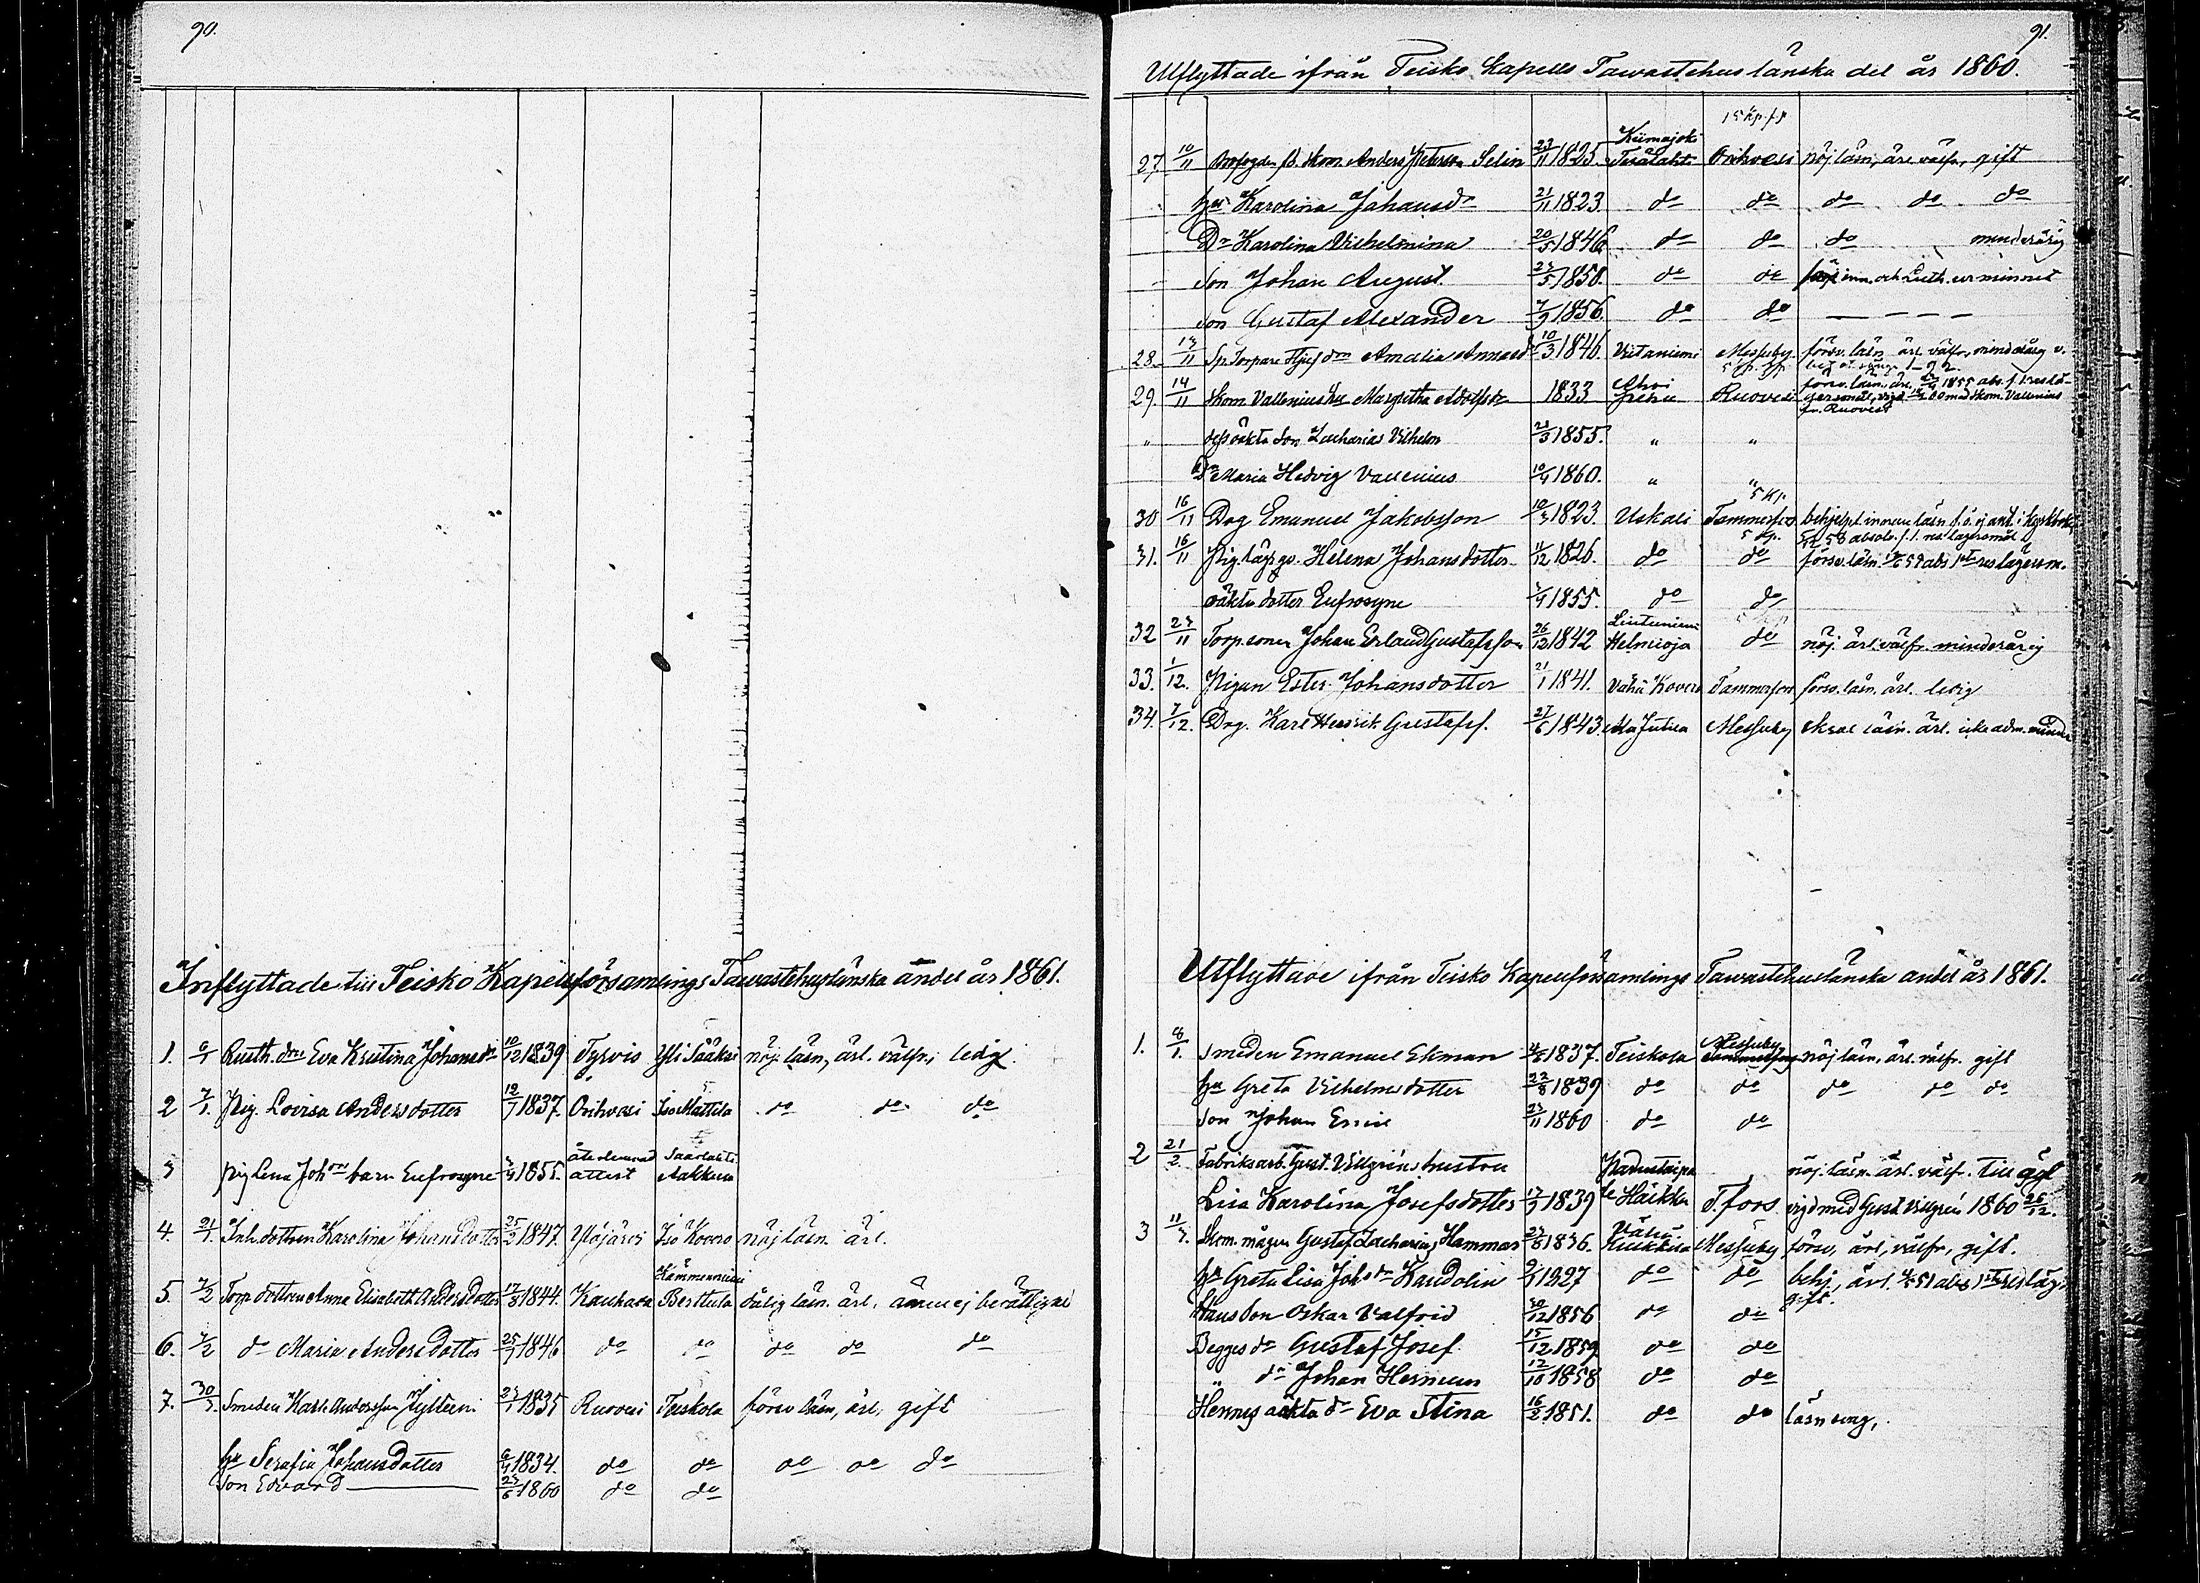 90.
Inflyttade till Teisko Kapellförsamlings Tawastehuslänska andel år 1861.
1. 6/1 Rusth. dr Eva Kristina Johansdr 10/12 1839 Tyrvis Yli Sääksi nöj. läsn, ärl. välfr, ledig
2 7/1. Pig. Lovisa Andersdotter 12/7 1837. Orihvesi Iso Mattila do do do
återlemnad Saarlaht
3 pig Lena Johdrs barn Eufrosyne 3/4 1855. attest Aakkula
4. 21/1. Inh. dottren Karolina Johansdotter 25/2 1847. Ylöjärvi Iso Kovero nöj läsn. ärl.
Kämmenniemi
5. 7/2 Torp. dottren Anna Elisabeth Andersdotter 17/8 1844. Kauhava Berttula dålig läsn. ärl. ännu ej berättigad
6. 7/2 do Maria Andersdotter 25/7 1846 do do do do do
7. 30/3. Smeden Karl Andersson 23/1 1835 Ruovesi Teiskola försv läsn, ärl, gift
hu Serafia Johansdotter 6/4 1834. do do do do do
Son Edvard 23/6 1860 do do
91.
Utflyttade ifrån Teisko Kapells Tawastehus länska del år 1860.
15 kp.
Kiimajoki
27. 10/11 Anders Petersson Selin 23/11 1825. Terälaht Orihvesi nöj läsn, ärl. välfr, gift
hu Karolina Johansdr 21/11 1823. do do do do do
Dr Karolina Vilhelmina 20/5 1846 do do do minderårig
Son Johan August 23/5 1850. do do inn. och Luth. ur minnet
Son Gustaf Alexander 7/9 1856. do do — — — —
28. 13/11 Sp. Torpare Amalia Annasd 10/3 1846. Viitaniemi Messuby. försv. läsn ärl. välfr, minderårig
29. 14/11 Skom. Vallenius hu Margretha Adolfsdr 1833 Ahoi Ruovesi försv. läsn., ärl. 1855 abs. f.
Ruovesi
" dess oäkta Son Zacharias Vilhelm 23/3 1855. " "
Dr Maria Hedvig Vallenius 10/4 1860. " "
5 Kp.
30 16/11 Drg Emanuel Jakobsson 10/3 1823. Uskali Tammerfors
31. 16/11 Pig. Helena Johansdotter 11/12 1826. do do försv. läsn. 59 abs
oäkta dotter Eufrosyne 3/4 1855. do do
Lintuniemi
32 23/11 Torp. sonen Johan Erland Gustafsson 26/12 1842 Helmioja do nöj. ärl. välfr. minderårig
33. 1/12. Pigan Ester Johansdotter 21/1 1841. Vähä Kovero Tammerfors försv. läsn. ärl. ledig
34. 7/12. Drg. Karl Henrik Gustafss. 27/6 1843. Ala Jutila Messuby Svag läsn. ärl. icke adm.
Utflyttade ifrån Teisko Kapellförsamlings Tawastehuslänska andel år 1861.
Messuby
1. 8/1. Smeden Emanuel Ekman 1837. Teiskola Tammerfors nöj läsn, ärl. välfr. gift
hu Greta Vilhelmsdotter 22/8 1839 do do do do do
Son Johan Emil 23/11 1860 do do
2 21/2. Fabriksarb. Gust. Villgréns hustru Padustaipa nöj. läsn. ärl. välfr. till
Lisa Karolina Josefsdotter 17/3 1839 Häikkä T.fors vigd med Gust Villgrén 1860 26/12.
3 11/3. Skom. mågen Gustaf Zacharias Hammar 23/8 1836. Vähä Kuikkila Messuby försv, ärl, välfr, gift.
hu Greta Lisa Johsdr Kandolin 9/1 1827 do do behj, ärl. 51 abs
gift.
Hans Son Oskar Valfrid 30/12 1856 do do
Begges do Gustaf Josef 15/12 1859 do do
" do Johan Herman 12/10 1858 do do
Hennes oäkta dr Eva Stina 16/2 1851. do do läsn svag,